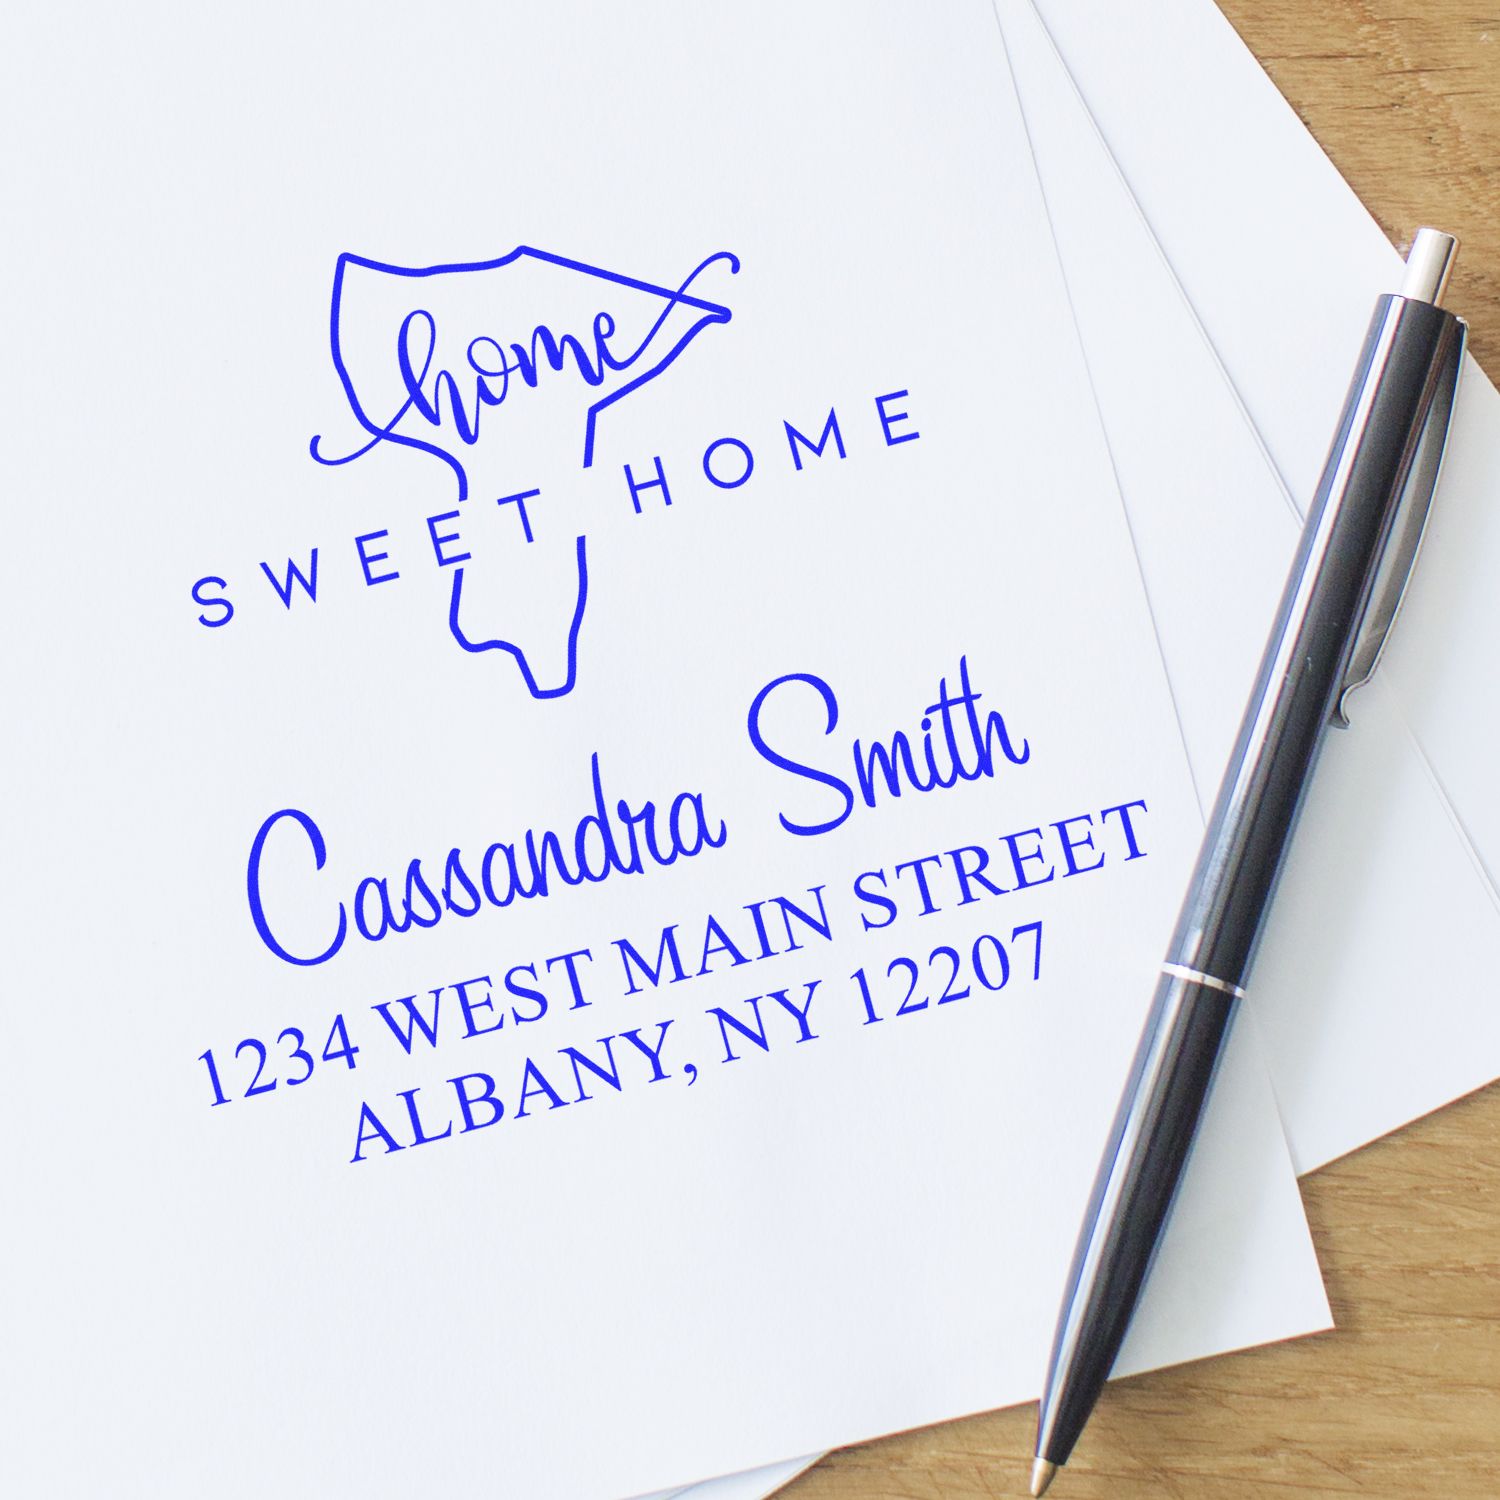 home
SWEET HOME
Cassandra Smith
1234 WEST MAIN STREET
ALBANY, NY 12207